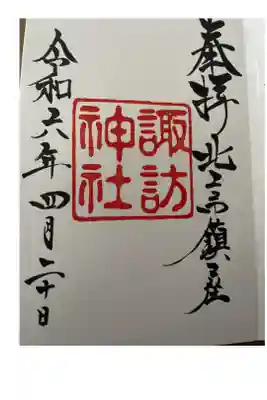 奉拝 鎮座
諏訪
神社
令和六年四月二十日